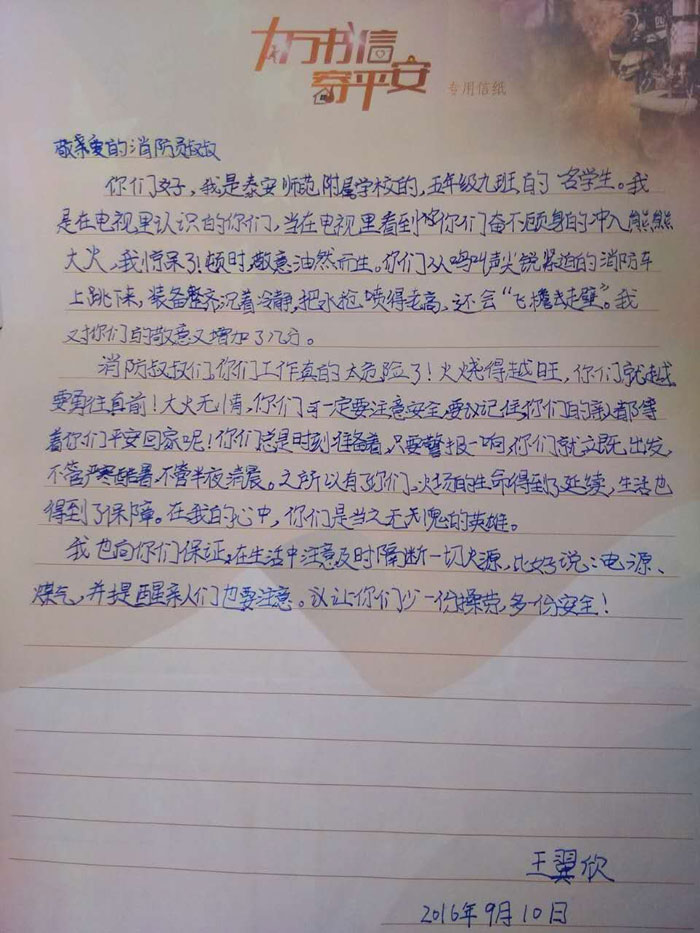 万书信
寄平安
专用信纸
敬亲爱的消防员叔叔
你们好，我是泰安师范附属学校的，五年级九班的一名学生。我
是在电视里认识的你们，当在电视里看到你们奋不顾身的冲入熊熊
大火，我惊呆了，顿时，敬意油然而生。你们从鸣叫声尖锐紧迫的消防车
上跳下来，装备整齐沉着冷静，把水抢喷得老高，还会“飞檐去走壁”。我
对你们的敬意又增加了几分。
消防叔叔们，你们工作真的太危险了！火烧得越旺，你们就越
要勇往直前！大火无情，你们一定要注意安全，要记住，你们的亲人都等
着你们平安回家呢！你们总是时刻准备着，只要警报一响，你们就立既出发，
不管严寒酷暑，不管半夜清晨。之所以有了你们，火场的生命得到了延续，生活也
得到了保障。在我的心中，你们是当之无愧的英雄。
我也向你们保证，在生活中注意及时隔断一切火源，比好说：电源、
煤气，并提醒亲人们也要注意。让你们少一份操劳，多一份安全！
王翼欣
2016年9月10日